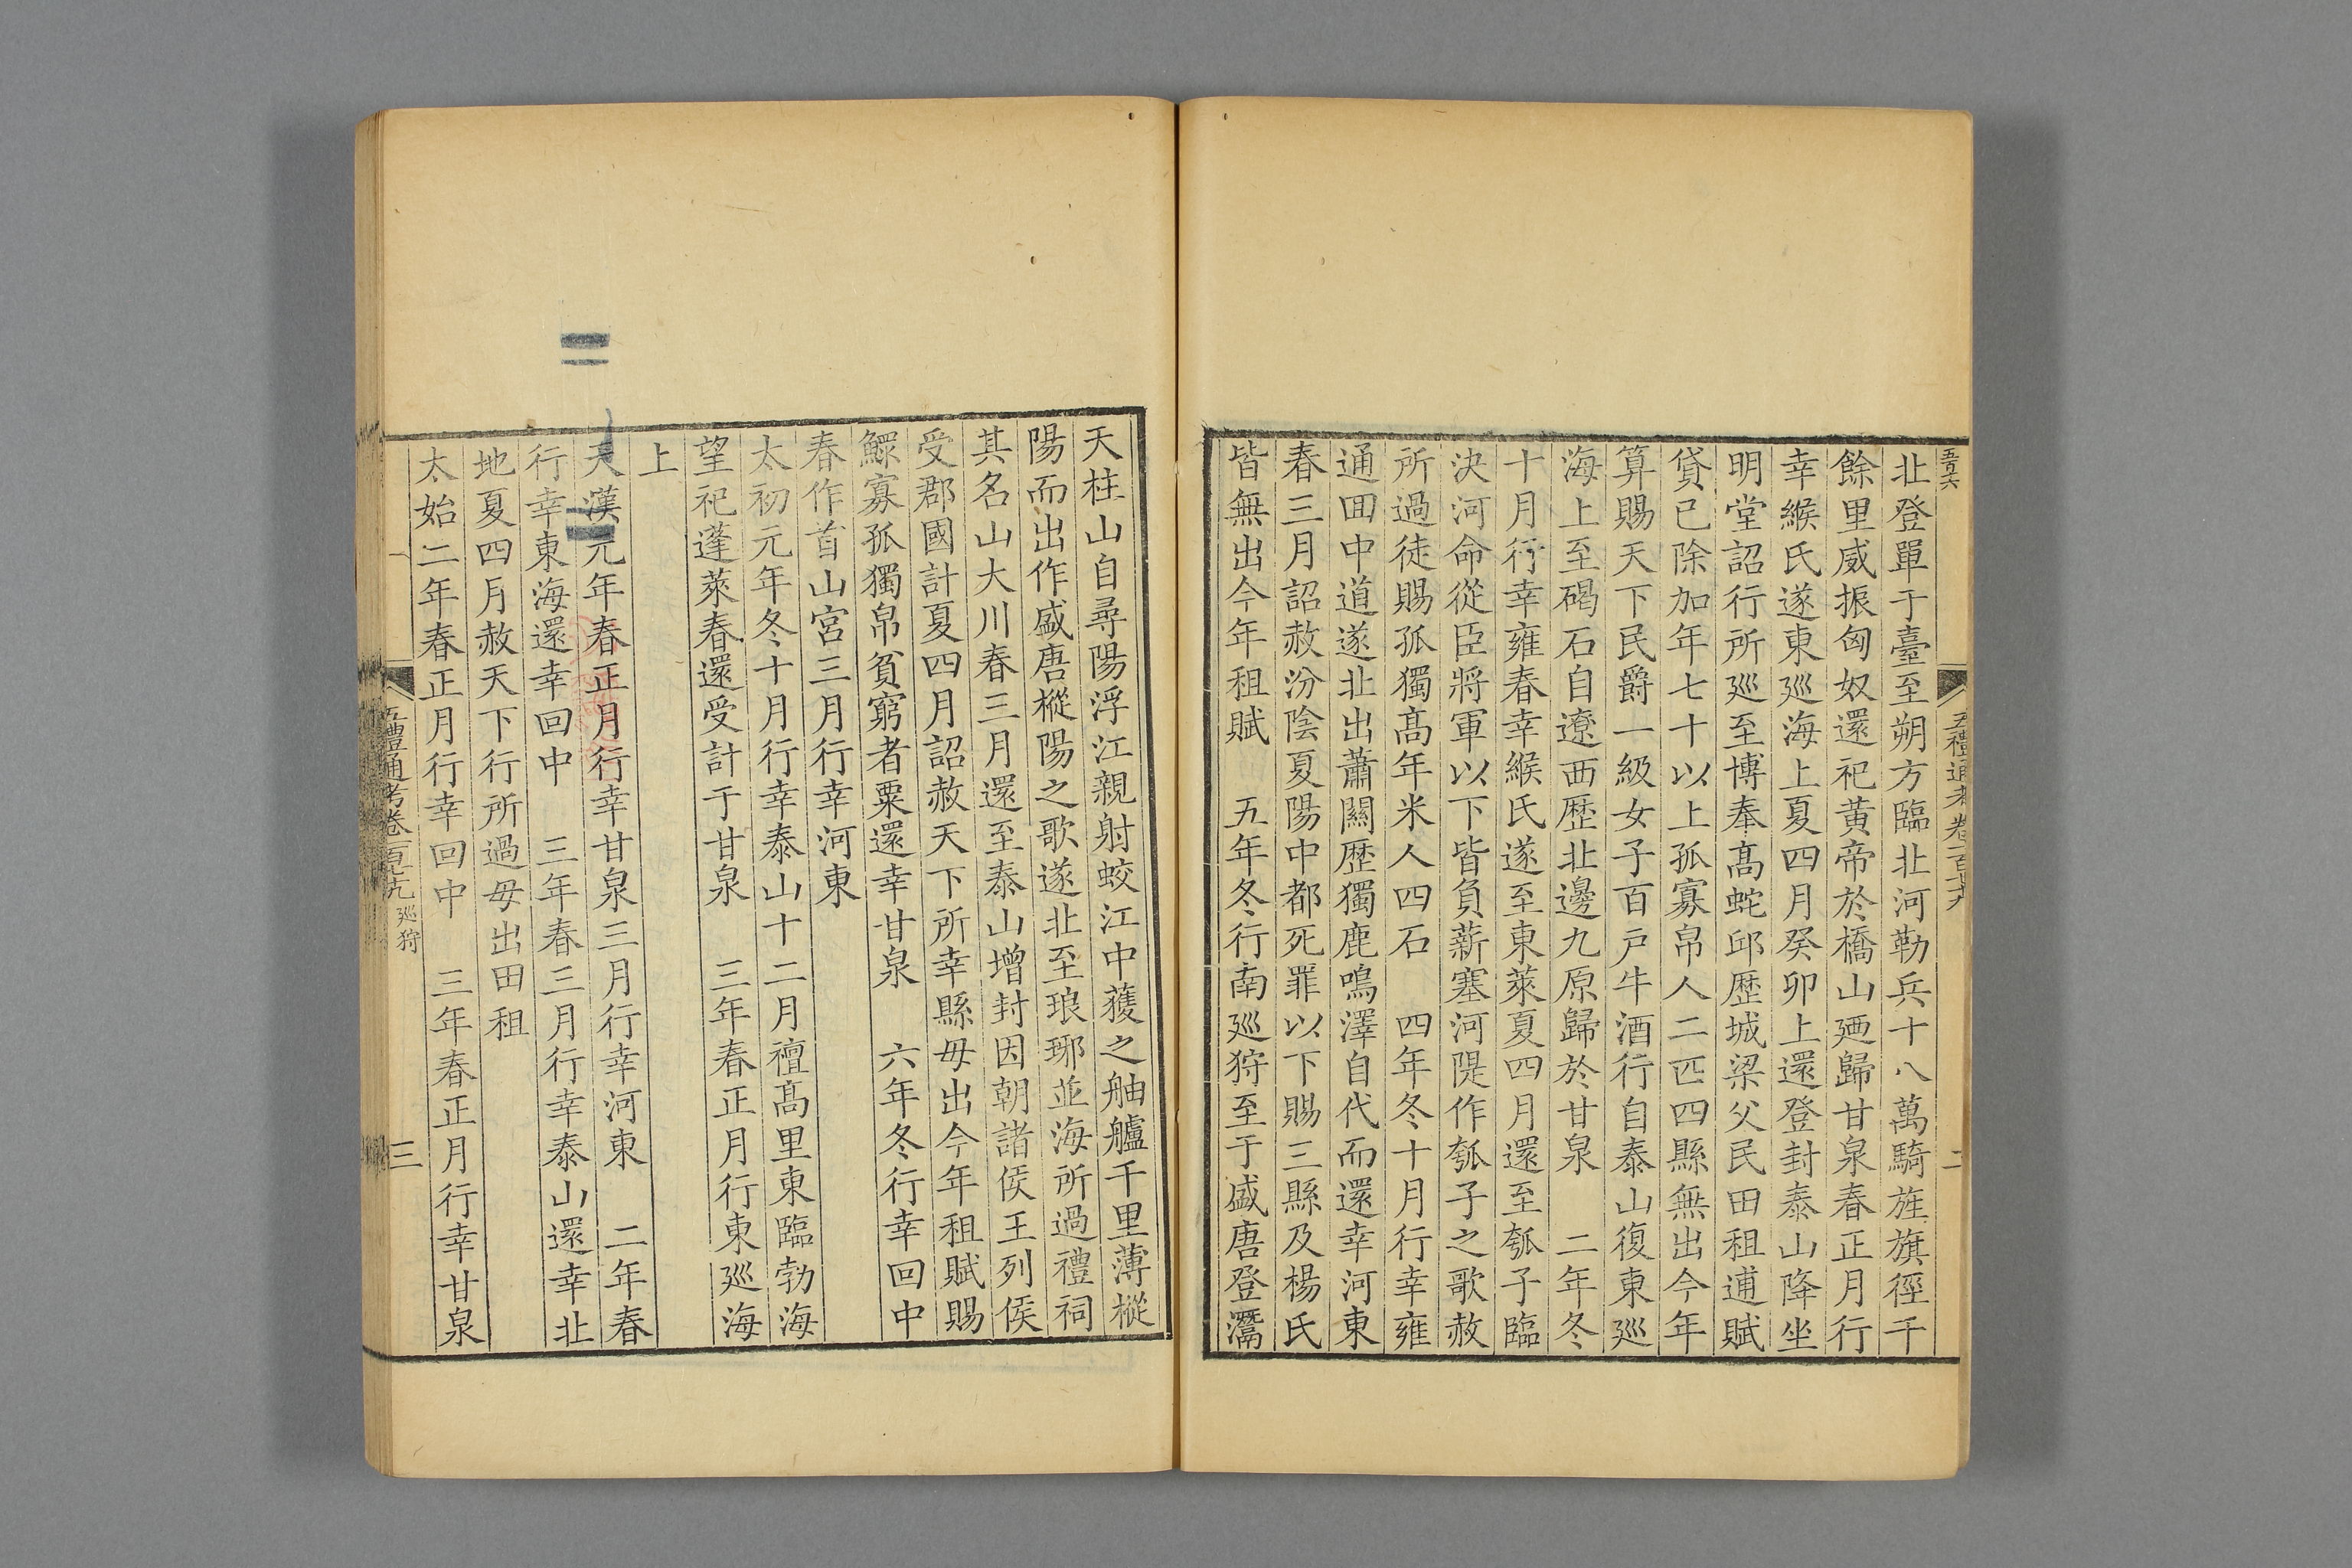 北登單于臺至朔方臨北河勒兵十八萬騎旌旗徑千
餘里威振匈奴還祀黃帝於橋山迺歸甘泉春正月行
幸緱氏遂東廵海上夏四月癸卯上還登封泰山降坐
明堂詔行所廵至博奉髙蛇邱歴城梁父民田租逋賦
貸已除加年七十以上孤寡帛人二匹四縣無出今年
算賜天下民爵一級女子百戸牛酒行自泰山復東廵
海上至碣石自遼西歴北邊九原歸於甘泉 二年冬
十月行幸雍春幸緱氏遂至東萊夏四月還至瓠子臨
決河命從臣將軍以下皆負薪塞河隄作瓠子之歌赦
所過徒賜孤獨髙年米人四石 四年冬十月行幸雍
通回中道遂北出蕭關歴獨鹿鳴澤自代而還幸河東
春三月詔赦汾陰夏陽中都死罪以下賜三縣及楊氏
皆無出今年租賦 五年冬行南廵狩至于盛唐登灊
天柱山自尋陽浮江親射蛟江中蒦之舳艫千里薄樅
陽而出作盛唐樅陽之歌遂北至琅邪並海所過禮祠
其名山大川春三月還至泰山增封因朝諸侯王列侯
受郡國計夏四月詔赦天下所幸縣毋出今年租賦賜
鰥寡孤獨帛貧窮者粟還幸甘泉 六年冬行幸回中
春作首山宮三月行幸河東
太初元年冬十月行幸泰山十二月禪髙里東臨勃海
望祀蓬萊春還受計于甘泉 三年春正月行東廵海
上
天漢元年春正月行幸甘泉三月行幸河東 二年春
行幸東海還幸回中 三年春三月行幸泰山還幸北
地夏四月赦天下行所過毋出田租
太始二年春正月行幸回中 三年春正月行幸甘泉
五禮通考卷一百七十九 廵狩
三